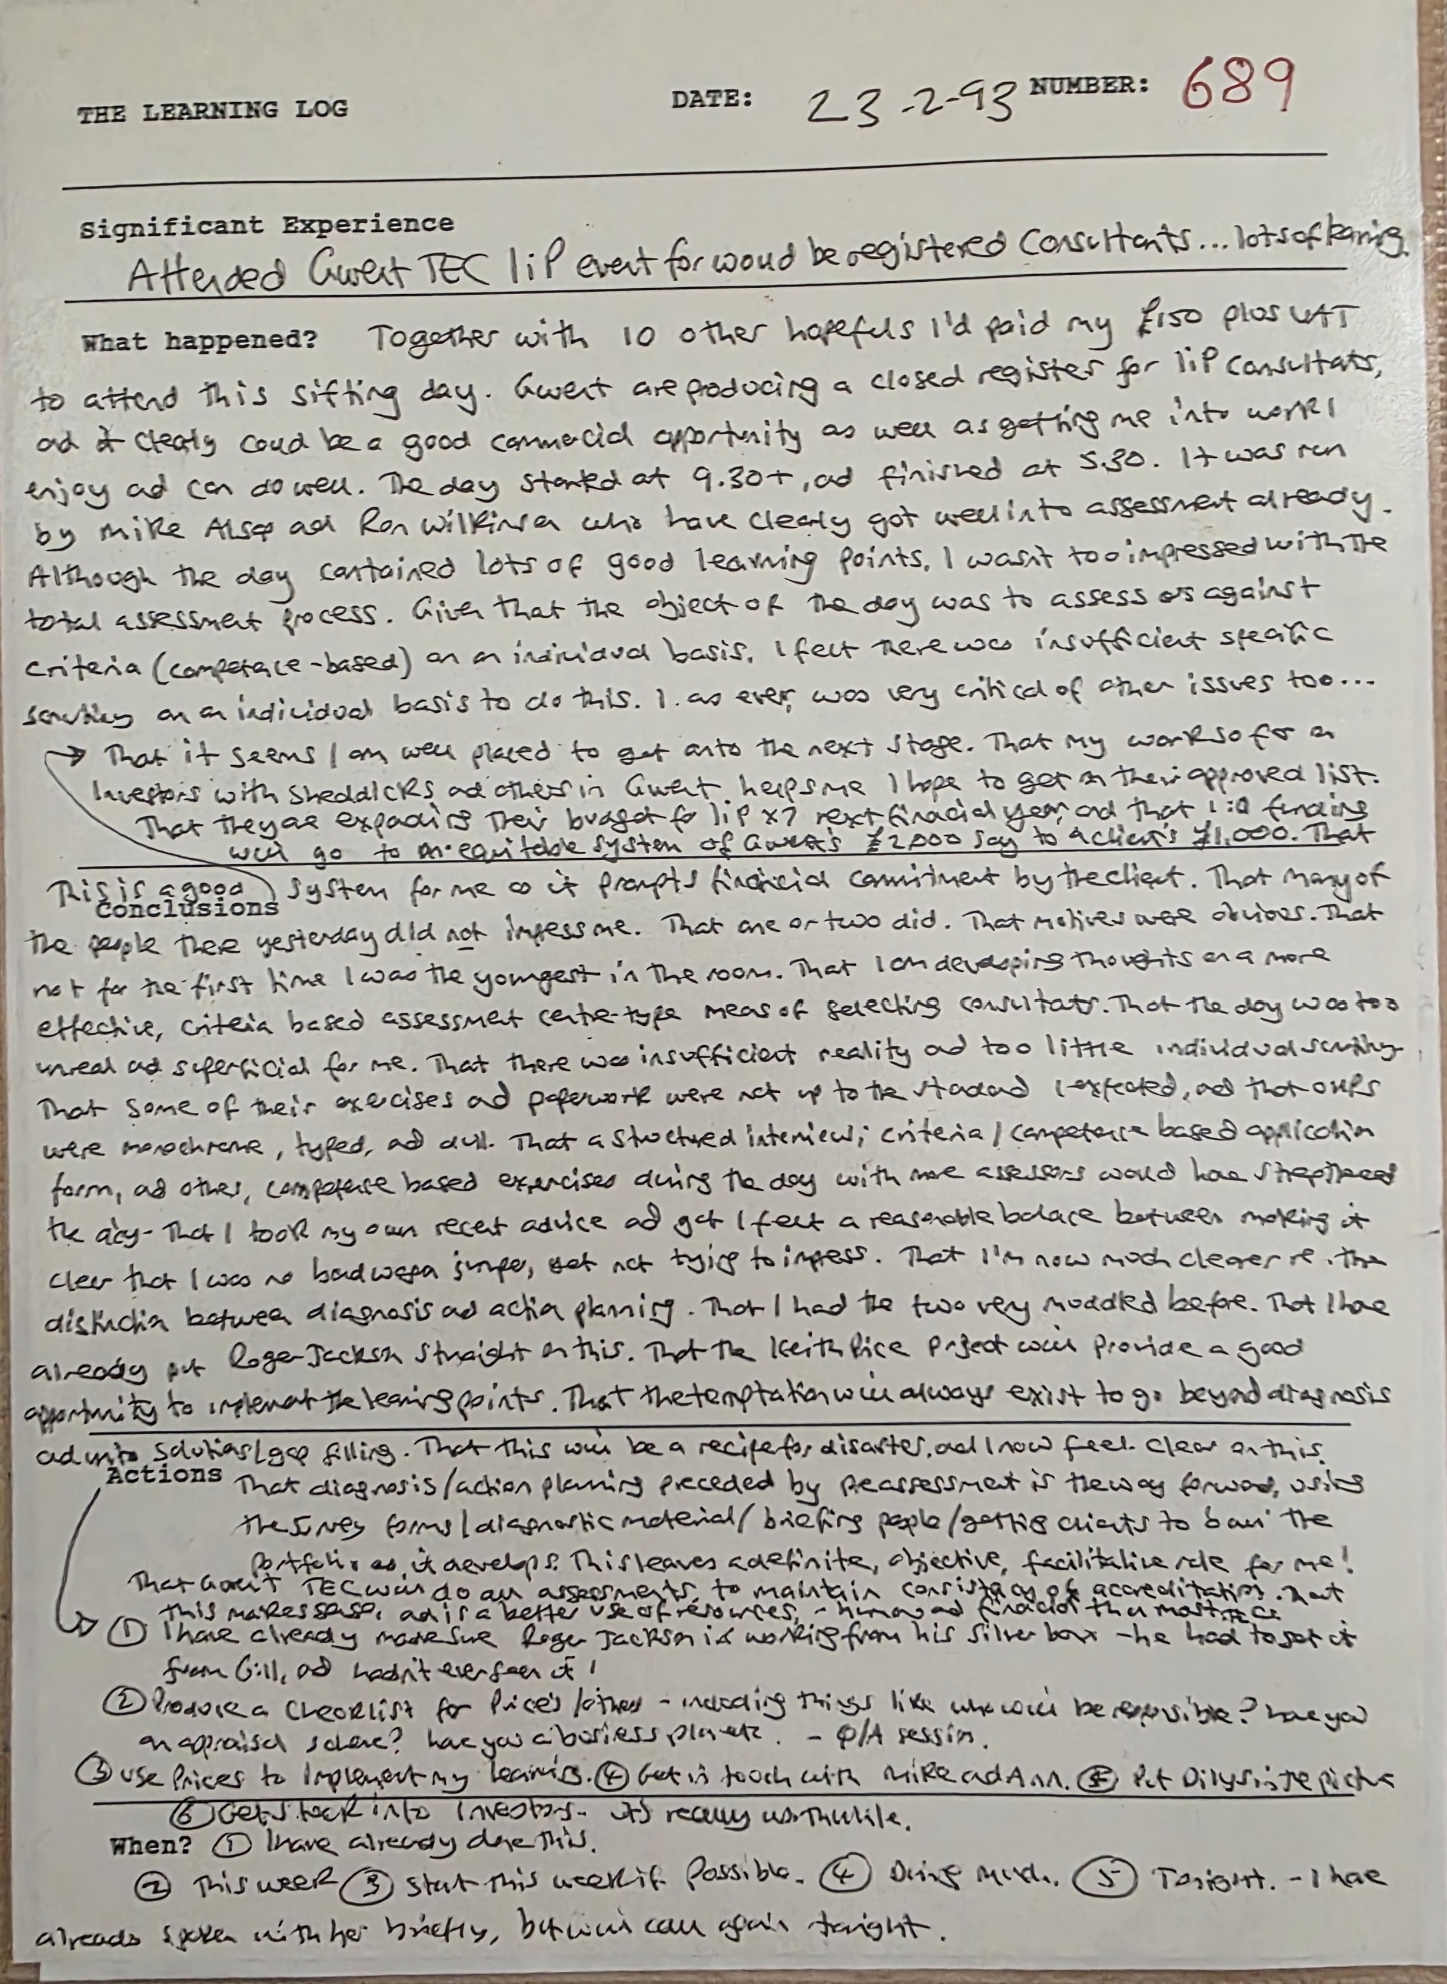 THE LEARNING LOG DATE: 23-2-93 NUMBER: 689
Significant Experience
Attended Gwent TEC IiP event for would be registered consultants... lots of learning.
What happened? Together with 10 other hopefuls I'd paid my £150 plus VAT
to attend this sifting day. Gwent are producing a closed register for IiP consultants,
and it clearly could be a good commercial opportunity as well as getting me into work I
enjoy and can do well. The day started at 9.30+, and finished at 5.30. It was run
by Mike Alsop and Ron Wilkinson who have clearly got well into assessment already.
Although the day contained lots of good learning points, I wasn't too impressed with the
total assessment process. Given that the object of the day was to assess us against
criteria (competence-based) on an individual basis, I felt there was insufficient specific
scrutiny on an individual basis to do this. I, as ever, was very critical of other issues too...
→ That it seems I am well placed to get onto the next stage. That my work so far on
Investors with Sheddicks and others in Gwent helps me I hope to get on their approved list.
That they are expanding their budget for IiP x7 next financial year, and that funding
will go to an equitable system of Gwent's £2,000 say to a client's £1,000. That
This is a good system for me as it prompts financial commitment by the client. That many of
Conclusions
the people there yesterday did not impress me. That one or two did. That motives were obvious. That
not for the first time I was the youngest in the room. That I am developing thoughts on a more
effective, criteria based assessment centre-type means of selecting consultants. That the day was too
unreal and superficial for me. That there was insufficient reality and too little individual scrutiny.
That some of their exercises and paperwork were not up to the standard I expected, and that OHPs
were monochrome, typed, and dull. That a structured interview; criteria/competence based application
form, and other, competence based exercises during the day with more assessors would have strengthened
the day. That I took my own recent advice and got I felt a reasonable balance between making it
clear that I was no bandwagon jumper, yet not trying to impress. That I'm now much clearer re. the
distinction between diagnosis and action planning. That I had the two very muddled before. That I have
already put Roger Jackson straight on this. That the Keith Price project will provide a good
opportunity to implement the learning points. That the temptation will always exist to go beyond diagnosis
and into solutions/gap filling. That this will be a recipe for disaster, and I now feel clear on this.
Actions
That diagnosis/action planning preceded by preassessment is the way forward, using
the survey forms/diagnostic material/briefing people/getting clients to 'own' the
portfolio as it develops. This leaves a definite, objective, facilitative role for me!
That Gwent TEC will do all assessments, to maintain consistency of accreditation. That
this makes sense, and is a better use of resources, - human and financial than most TECs
① I have already made sure Roger Jackson is working from his silver box - he had to get it
from Gill, and hadn't even seen it!
② Produce a checklist for Price's/others - including things like who will be responsible? have you
an appraisal scheme? have you a business plan etc. - Q/A session.
③ Use Prices to implement my learning. ④ Get in touch with Mike and Ann. ⑤ Put Dilys in the picture
⑥ Get stuck into Investors. It's really worthwhile.
When? ① I have already done this.
② This week ③ Start this week if possible. ④ ⑤ Tonight. - I have
already spoken with her briefly, but will call again tonight.